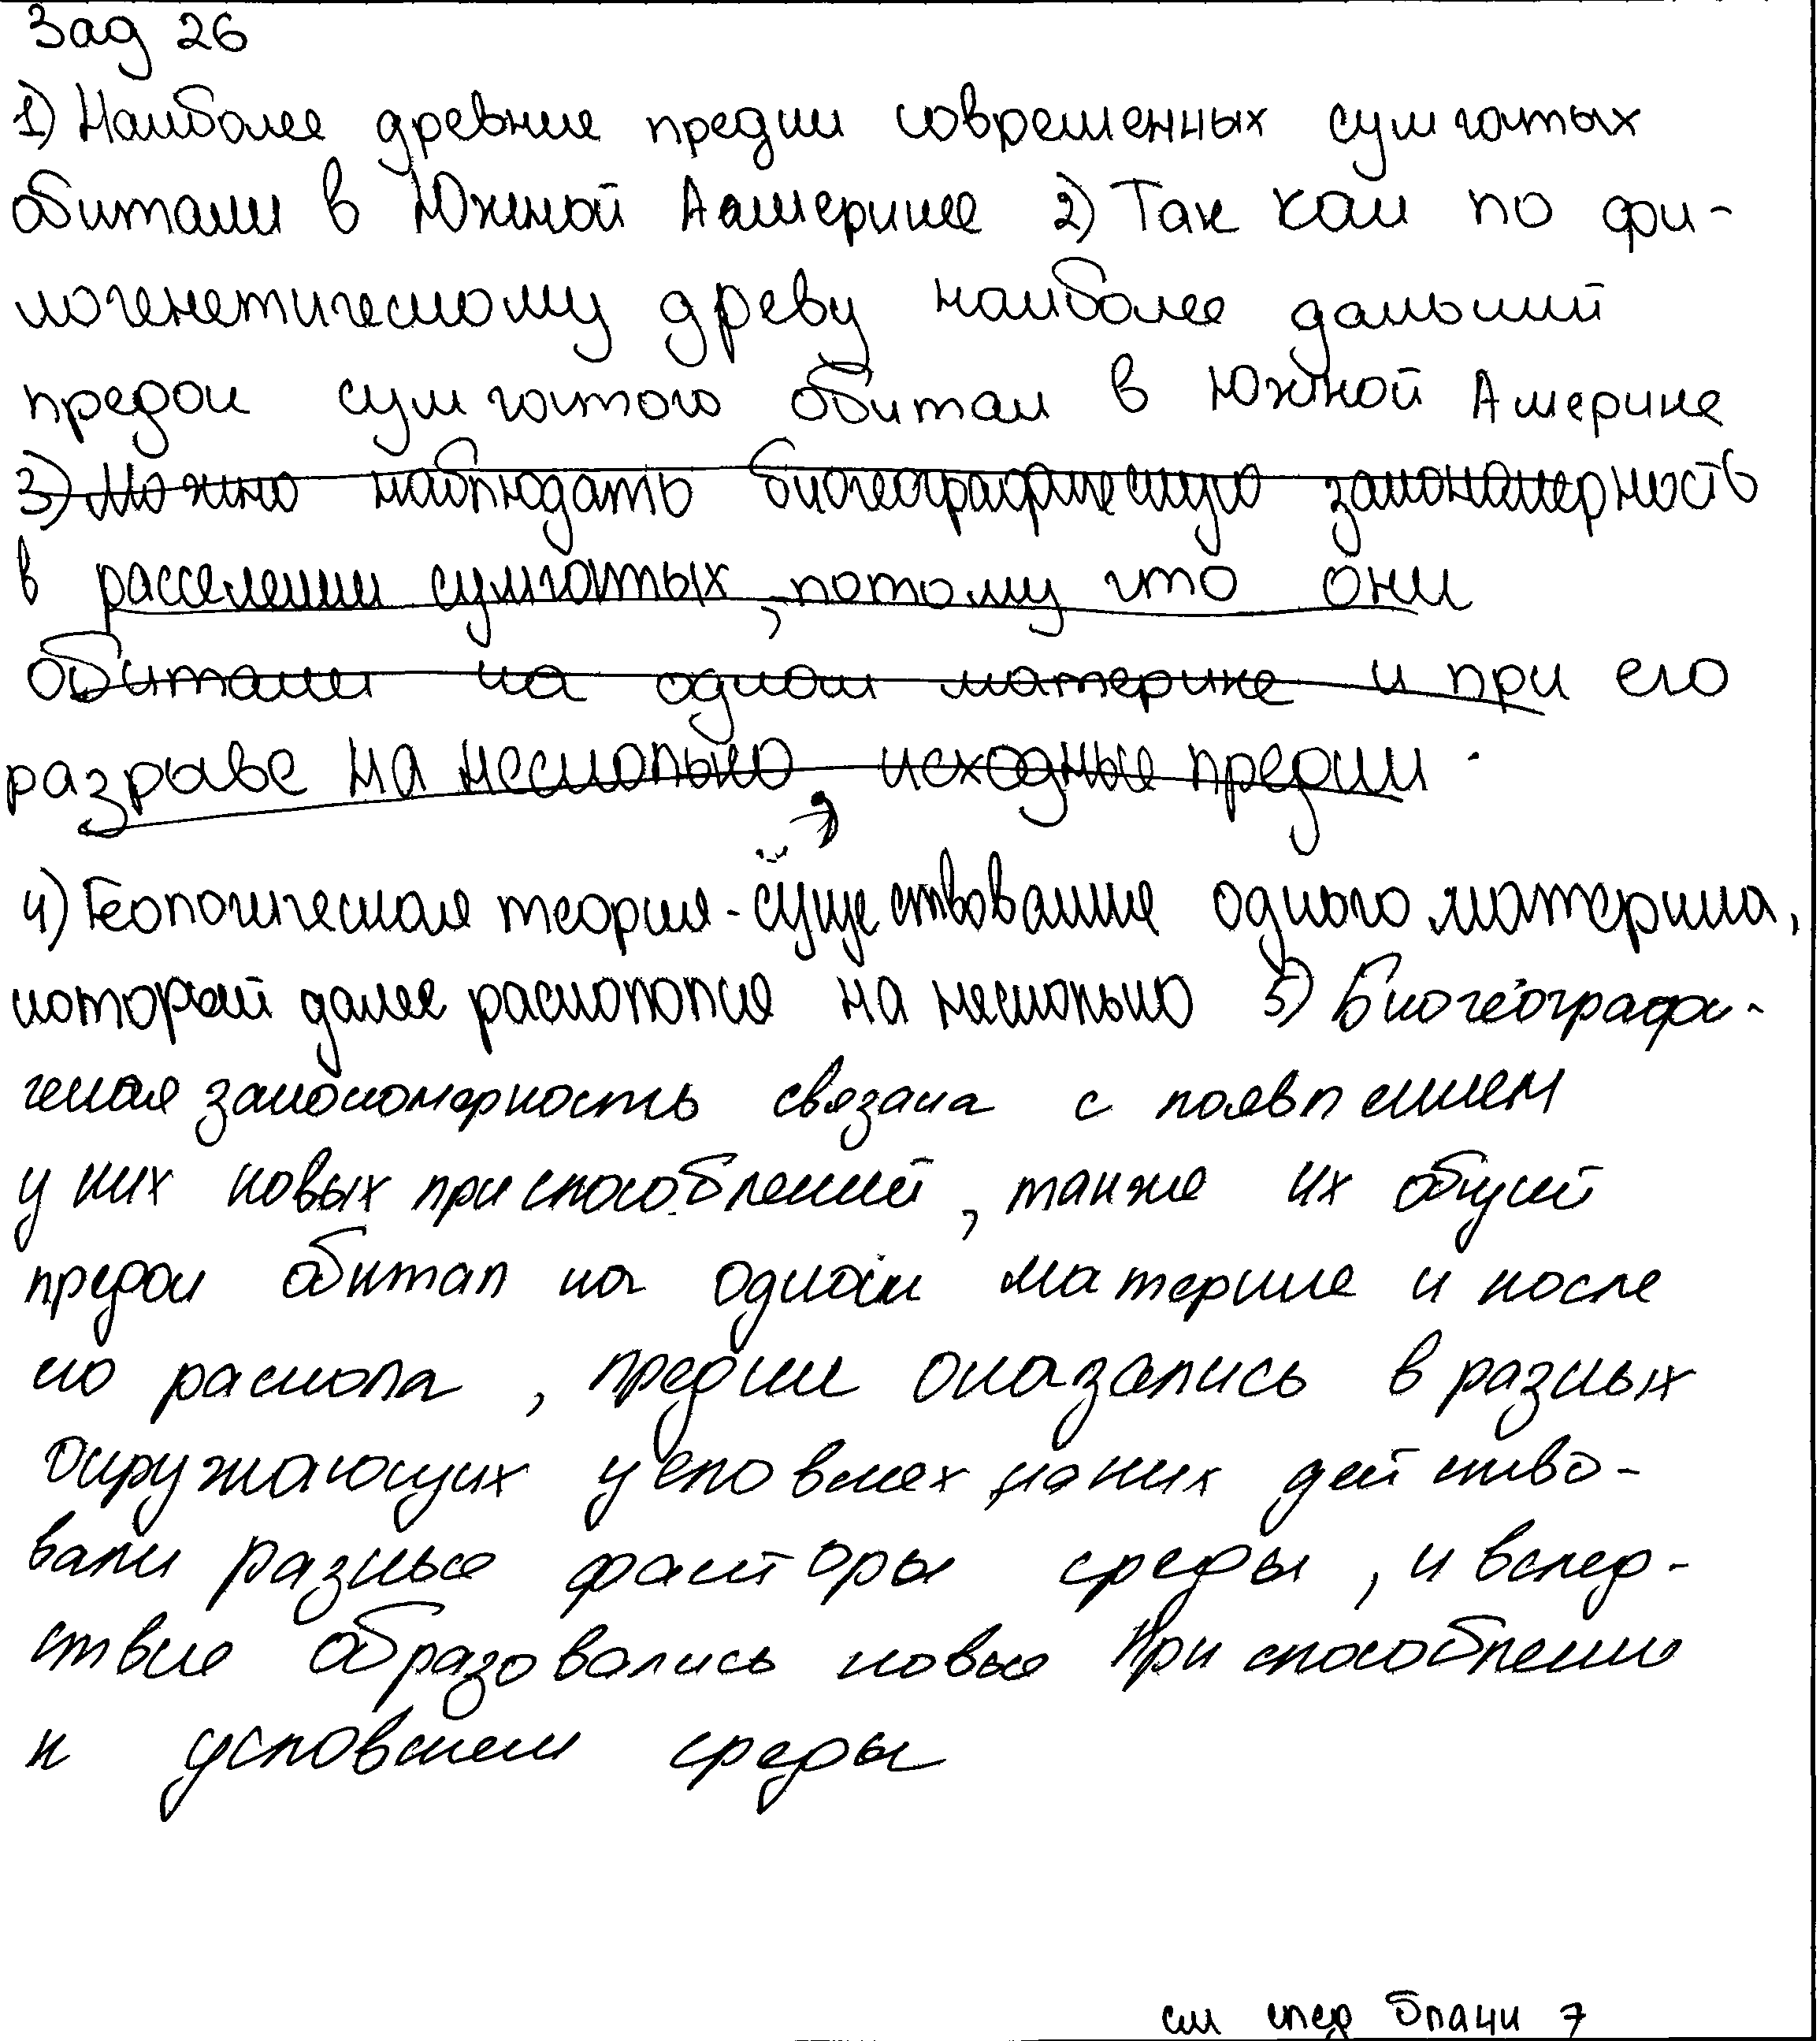 Зад 26
1) Наиболее древние предки современных сумчатых
обитали в Южной Америке 2) Так как по фи-
логенетическому древу наиболее дальний
предок сумчатого обитал в Южной Америке
3) Можно наблюдать биогеографическую закономерность
в расселении сумчатых, потому что они
обитали на одном материке и при его
разрыве на несколько исходные предки
4) Геологическая теория - существование одного материка,
который далее раскололся на несколько 5) Биогеографи-
ческая закономерность связана с появлением
у них новых приспособлений, также их общий
предок обитал на одном материке и после
его раскола, предки оказались в разных
окружающих условиях, на них действо-
вали разные факторы среды, и вслед-
ствие образовались новые приспособления
к условиям среды
см след бланк 7